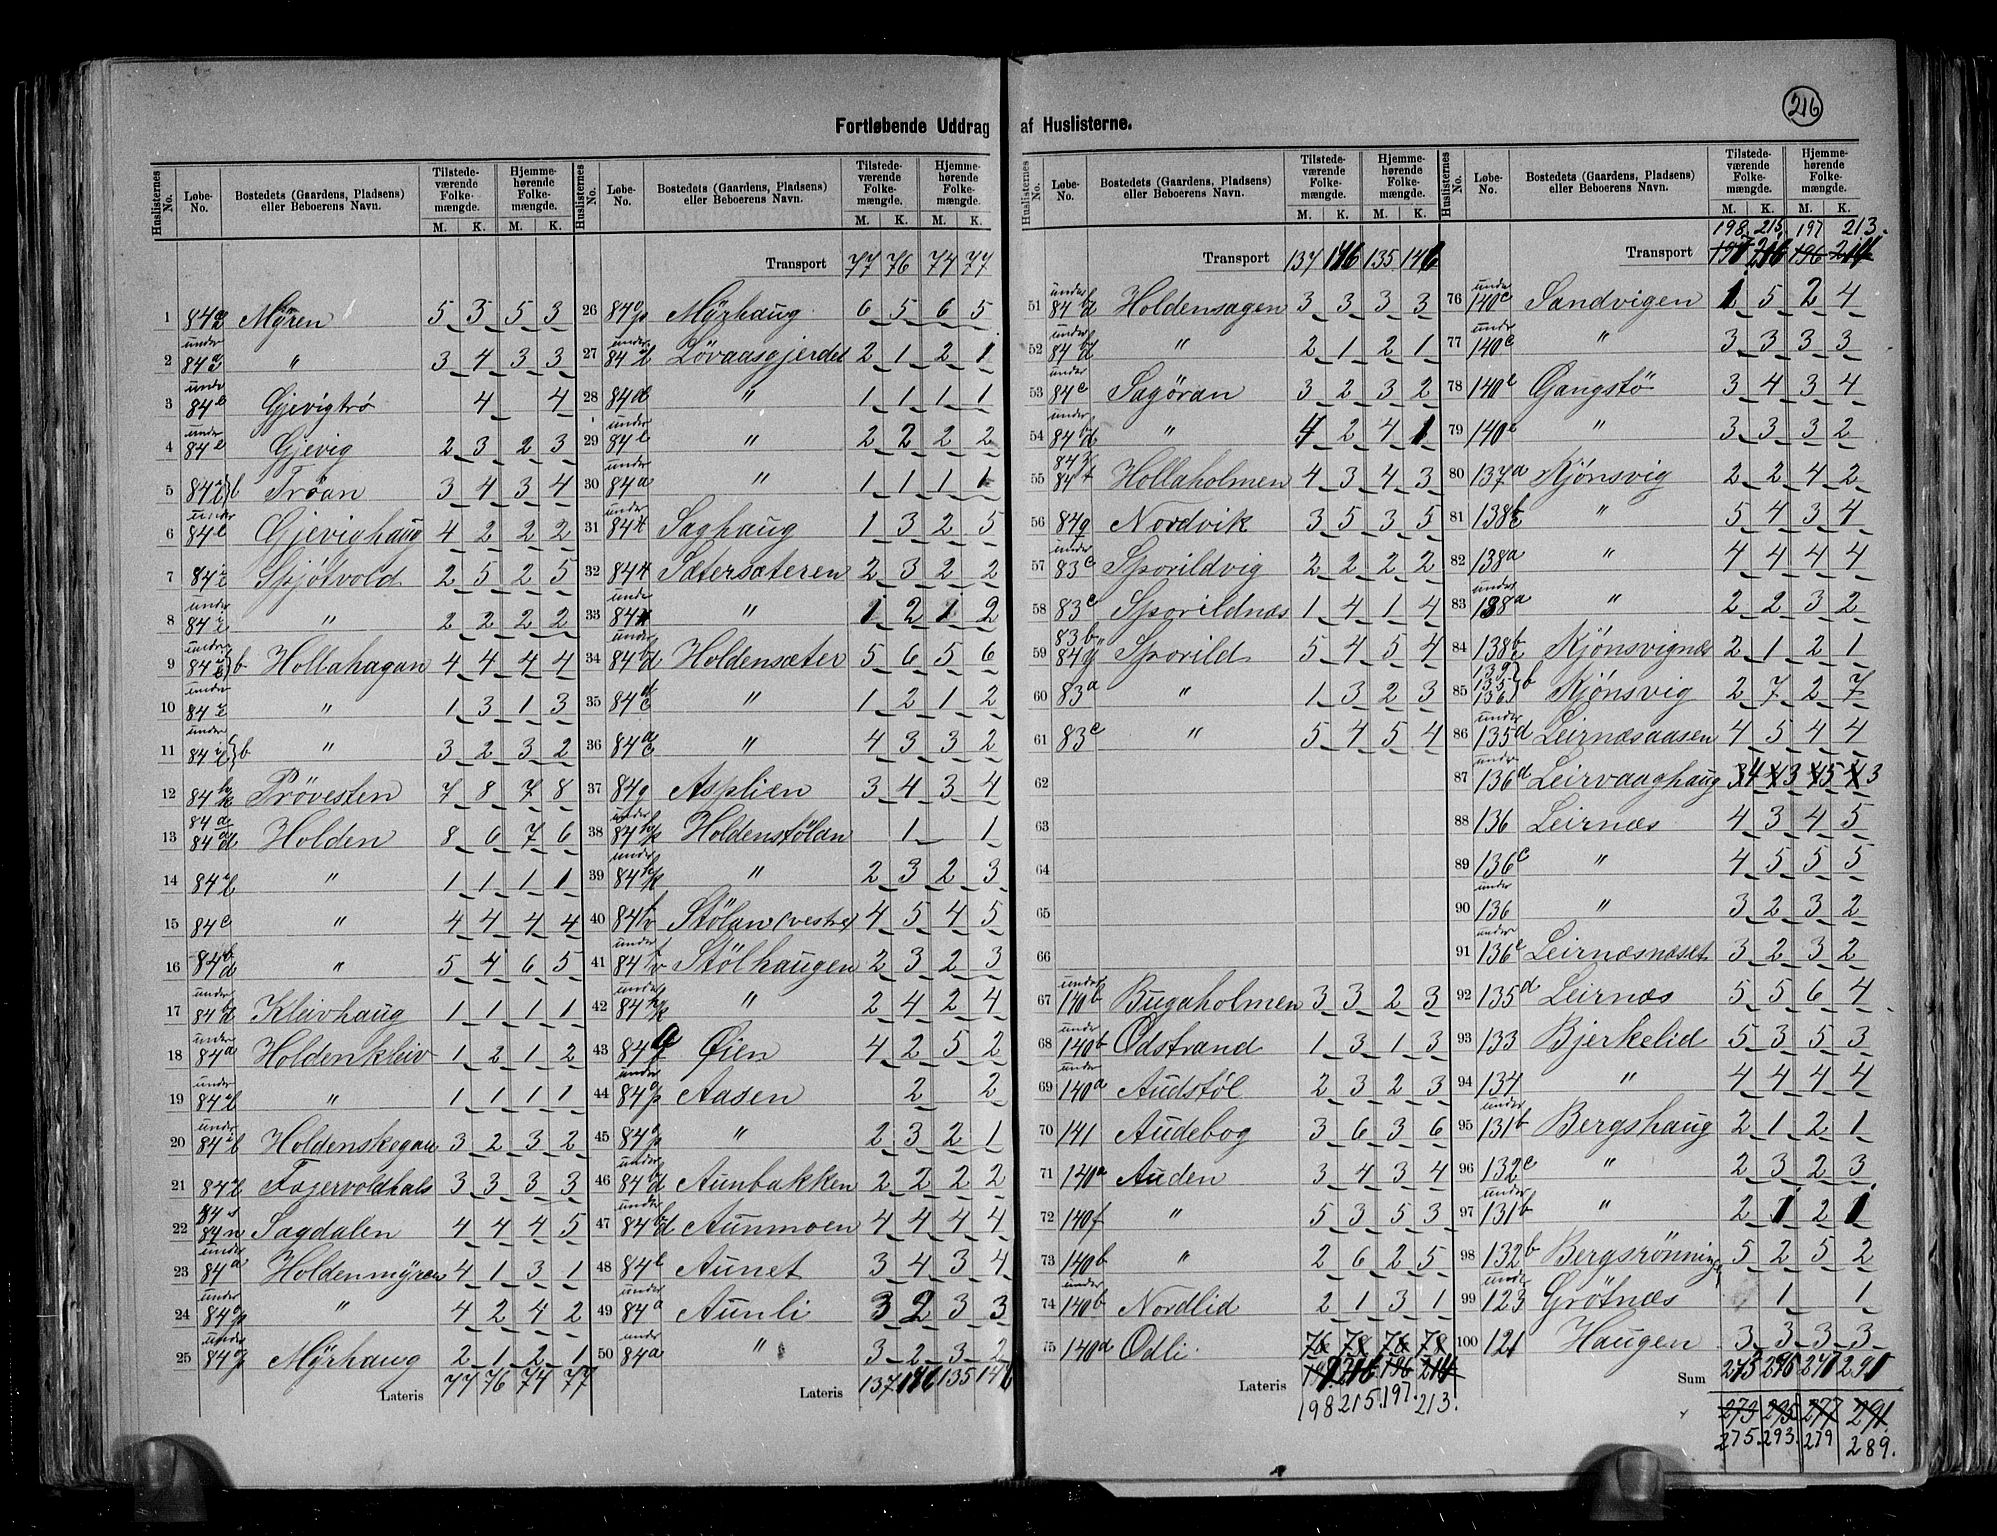 216
Fortløbende Uddrag af Huslisterne.
Huslisternes No. Løbe-No. Bostedets (Gaardens, Pladsens) eller Beboerens Navn. Tilstedeværende Folkemængde. M. K. Hjemmehørende Folkemængde. M. K.
1 84 Myren 5 3 5 3
2 under 84 " 3 4 3 3
3 unde 84e Gjevigtrø 4 4
4 under 84e Gjevig 2 3 2 3
5 84 b Trøan 3 4 3 4
6 under 84e Gjevighaug 4 2 2 2
7 84 Spjøtvold 2 5 2 5
8 under 84 " 2 2 2 2
9 under 84 b Hollahagan 4 4 4 4
10 under 84 " 1 3 1 3
11 under 84 b " 3 2 3 2
12 84 h/k Prøvesten 7 8 7 8
13 84 Holden 8 6 7 6
14 84 " 1 1 1 1
15 84c " 4 4 4 4
16 84 b/d " 5 4 6 5
17 under 84 Kleivhaug 1 1 1 1
18 under 84a Holdenkleiv 1 2 1 2
19 under 84 " 1 1 1 1
20 under 84 Holdenskegan 3 2 3 2
21 84 Fagervoldhals 3 3 3 3
22 84s 84n Sagdalen 4 4 4 5
23 under 84a Holdenmyren 4 1 3 1
24 under 84 " 4 2 4 2
25 under 84 Myrhaug 2 1 2 1
Lateris 77 76 74 77
Huslisternes No. Løbe-No. Bostedets (Gaardens, Pladsens) eller Beboerens Navn. Tilstedeværende Folkemængde. M. K. Hjemmehørende Folkemængde. M. K.
Transport 77 76 74 77
26 84 Myrhaug 6 5 6 5
27 under 84 Løvaasgjerdet 2 1 2 1
28 84 " 1 1 1 1
29 under 84 " 2 2 2 2
30 under 84a " 1 1 1 1
31 84 Saghaug 1 3 2 5
32 84 Sætersæteren 2 3 2 2
33 unde 84 " 1 2 1 2
34 under 84 Holdensæter 5 6 5 6
35 84 " 1 2 1 2
36 84 a/c " 4 3 3 2
37 84g Asplien 3 4 3 4
38 under 84 h/k Holdenstølan 1 1
39 under 84 h/k " 2 3 2 3
40 84 Stølan (vestre) 4 5 4 5
41 under 84 Stølhaugen 2 3 2 3
42 under 84 " 2 4 2 4
43 84 Øien 4 2 5 2
44 under 84 Aasen 2 2
45 84 " 2 3 2 1
46 under 84 Aunbakken 2 2 2 2
47 under 84 b/d Aunmoen 4 4 4 4
48 84 Aunet 3 4 3 4
49 under 84a Aunli 3 2 3 3
50 under 84a " 3 2 3 2
Lateris 137 146 135 146
Huslisternes No. Løbe-No. Bostedets (Gaardens, Pladsens) eller Beboerens Navn. Tilstedeværende Folkemængde. M. K. Hjemmehørende Folkemængde. M. K.
Transport 137 146 135 146
51 under 84 b/d Holdensagen 3 3 3 3
52 under 84 b/d " 2 1 2 1
53 under 84c Sagøran 3 2 3 2
54 under 84 " 4 2 4 1
55 84 Hollaholmen 4 3 4 3
56 84q Nordvik 3 5 3 5
57 under 83c Sporildvig 2 2 2 2
58 83c Sporildnæs 1 4 1 4
59 83b 84g Sporild 5 4 5 4
60 83a " 1 3 2 3
61 83c " 5 4 5 4
62
63
64
65
66
67 under 140b Bugaholmen 3 3 2 3
68 under 140b Odstrand 1 3 1 3
69 under 140a Audstøl 2 3 2 3
70 141 Audebog 3 6 3 6
71 140a Auden 3 4 3 4
72 140f " 5 3 5 3
73 140b " 2 6 2 5
74 under 140b Nordlid 2 1 3 1
75 140d Odli 76 78 76 78
Lateris 216 196 214
198 215. 197. 213.
Huslisternes No. Løbe-No. Bostedets (Gaardens, Pladsens) eller Beboerens Navn. Tilstedeværende Folkemængde. M. K. Hjemmehørende Folkemængde. M. K.
198. 215. 197 213.
Transport 216 196 214
76 under 140c Sandvigen 1 5 2 4
77 under 140c " 3 3 3 3
78 140c Gangstø 3 4 3 4
79 140c " 3 3 3 2
80 137a Kjønsvig 2 2 4 2
81 138 " 5 4 3 4
82 138a " 4 4 4 4
83 under 138a " 2 2 3 2
84 138 Kjønsvignæs 2 1 2 1
85 139 135 136 b Kjønsvig 2 7 2 7
86 under 135d Leirnæsaasen 4 5 4 4
87 under 136d Leirvaaghaug 4 3 5 3
88 136 Leirnæs 4 3 4 5
89 136c " 4 5 5 5
90 under 136 " 3 2 3 2
91 under 136c Leirnæsnæset 3 2 3 2
92 135d Leirnæs 5 5 6 4
93 133 Bjerkelid 5 3 5 3
94 134 " 4 4 4 4
95 under 131b Bergshaug 2 1 2 1
96 132c " 2 3 2 3
97 under 131b " 2 1 2 1
98 132b Bergsrønning 5 2 5 2
99 under 123 Grøtnæs 1 1
100 121 Haugen 3 3 3 3
Sum
273 295 277 291.
275. 293. 279 289.